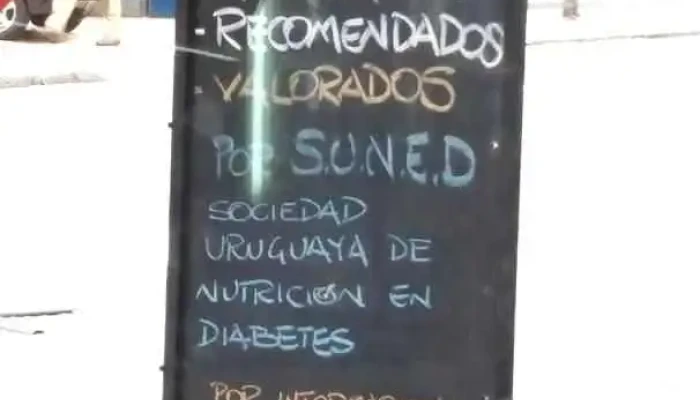 - RECOMENDADOS
- VALORADOS
POR S.U.N.E.D
SOCIEDAD
URUGUAYA DE
NUTRICION EN
DIABETES
POR